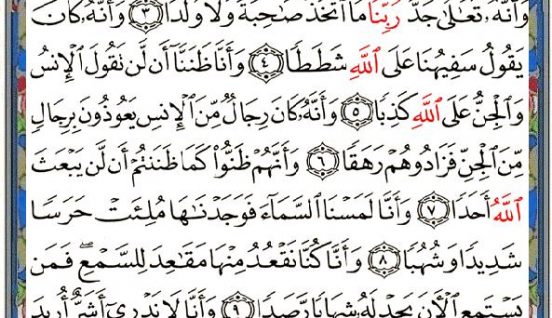 وَأَنَّهُۥ تَعَٰلَىٰ جَدُّ رَبِّنَا مَا ٱتَّخَذَ صَٰحِبَةً وَلَا وَلَدًا ٣ وَأَنَّهُۥ كَانَ
يَقُولُ سَفِيهُنَا عَلَى ٱللَّهِ شَطَطًا ٤ وَأَنَّا ظَنَنَّآ أَن لَّن تَقُولَ ٱلْإِنسُ
وَٱلْجِنُّ عَلَى ٱللَّهِ كَذِبًا ٥ وَأَنَّهُۥ كَانَ رِجَالٌ مِّنَ ٱلْإِنسِ يَعُوذُونَ بِرِجَالٍ
مِّنَ ٱلْجِنِّ فَزَادُوهُمْ رَهَقًا ٦ وَأَنَّهُمْ ظَنُّوا۟ كَمَا ظَنَنتُمْ أَن لَّن يَبْعَثَ
ٱللَّهُ أَحَدًا ٧ وَأَنَّا لَمَسْنَا ٱلسَّمَآءَ فَوَجَدْنَٰهَا مُلِئَتْ حَرَسًا
شَدِيدًا وَشُهُبًا ٨ وَأَنَّا كُنَّا نَقْعُدُ مِنْهَا مَقَٰعِدَ لِلسَّمْعِ ۖ فَمَن
يَسْتَمِعِ ٱلْءَانَ يَجِدْ لَهُۥ شِهَابًا رَّصَدًا ٩ وَأَنَّا لَا نَدْرِىٓ أَشَرٌّ أُرِيدَ